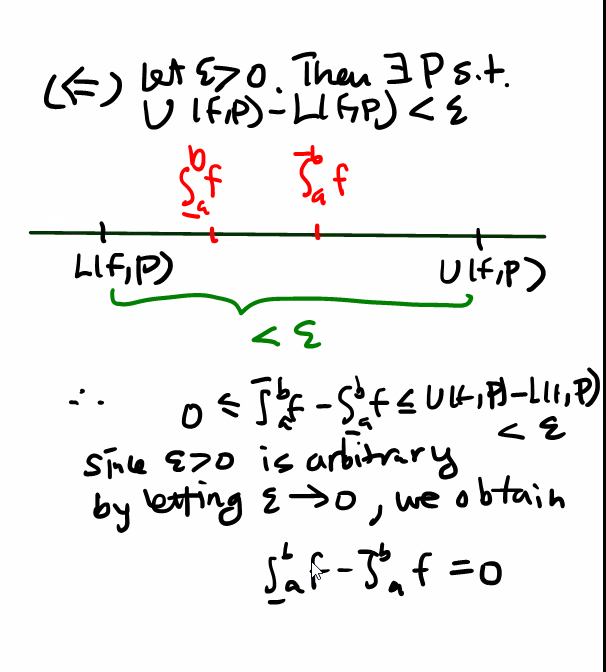 (⇐) Let ε>0. Then ∃ P s.t.
U(f,P) - L(f,P) < ε
∫̲ₐᵇ f ∫̄ₐᵇ f
L(f,P) U(f,P)
< ε
∴ 0 ≤ ∫̄ₐᵇ f - ∫̲ₐᵇ f ≤ U(f,P) - L(f,P)
< ε
since ε>0 is arbitrary
by letting ε → 0, we obtain
∫̲ₐᵇ f - ∫̄ₐᵇ f = 0